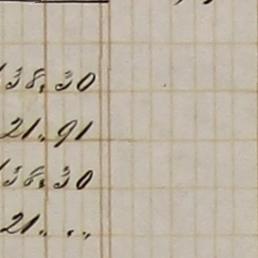 138,30
21,,91
138,30
21,, ,,